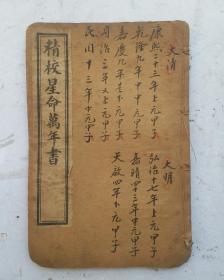 大清
康熙二十三年上元甲子
乾隆九年中元甲子
嘉慶九年下元甲子
同治三年又上元甲子
民国十三年中元甲子
大明
弘治十七年上元甲子
嘉靖四十三年中元甲子
天啟四年下元甲子
精校星命萬年書